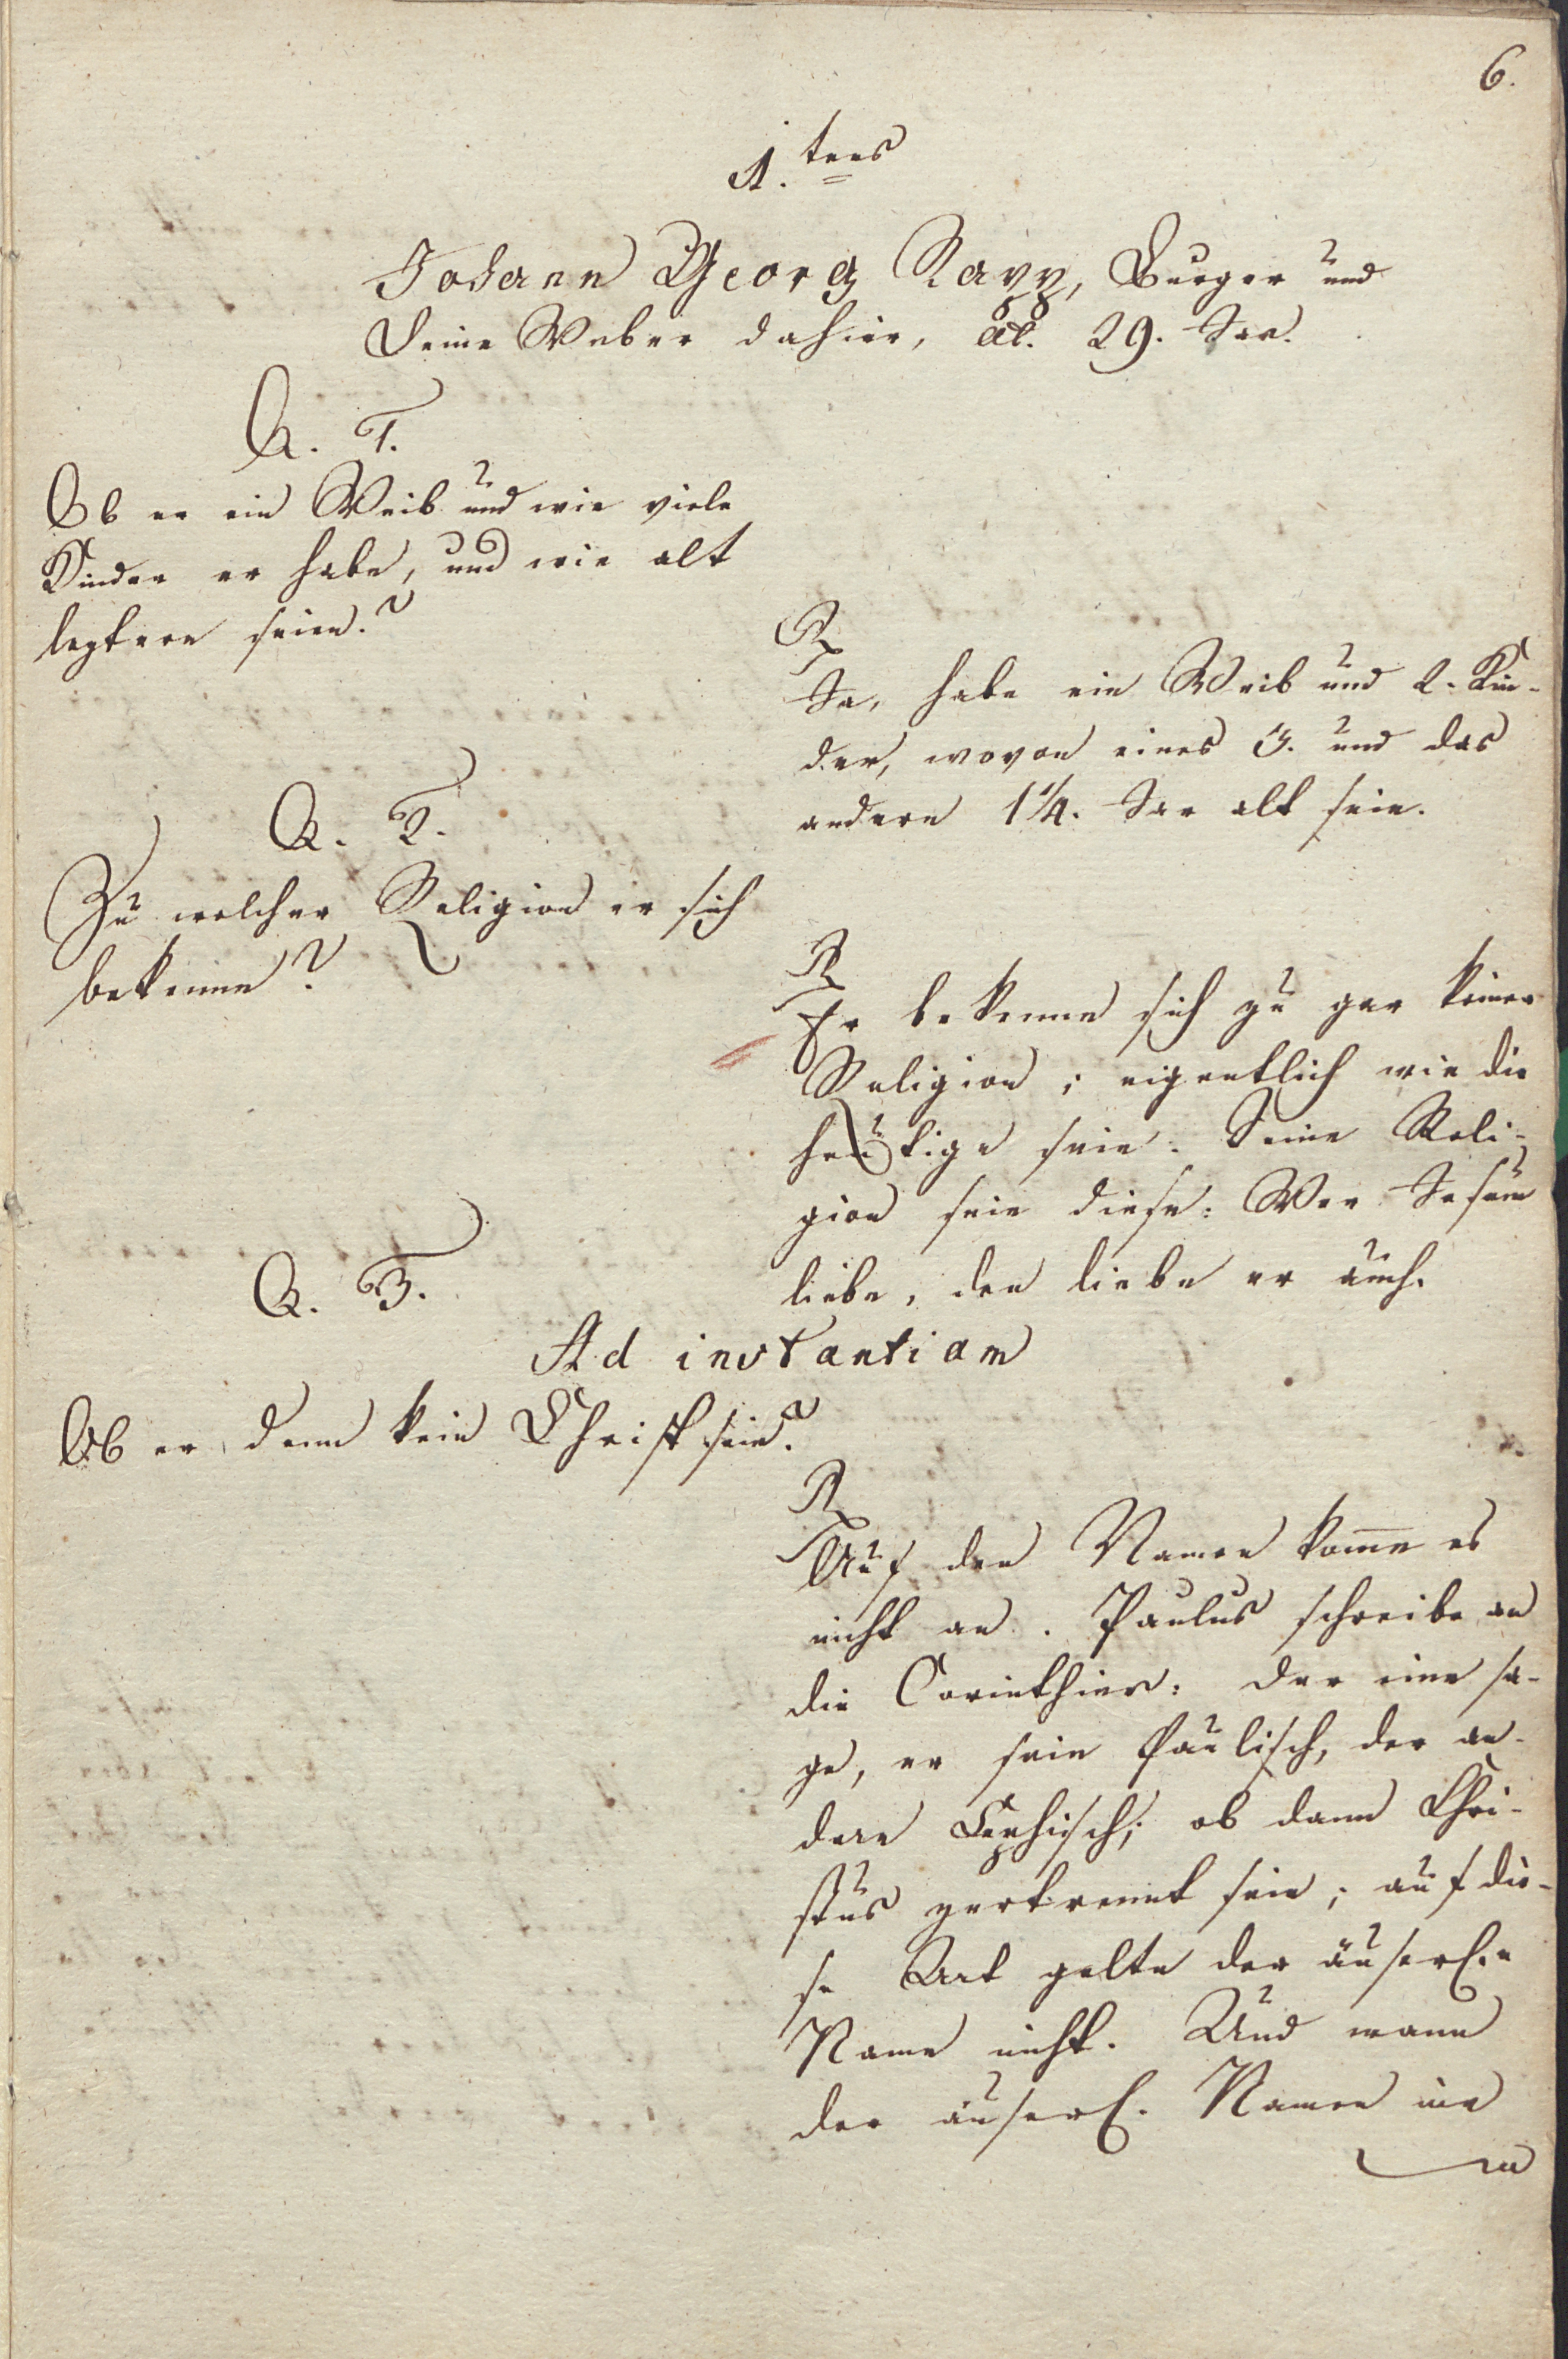 6.
1. tens
Johann Georg Rapp, Burger und
Leine Weber dahier, æt. 29. Jar.
Q. 1.
Ob er ein Weib und wie viele
Kinder er habe, und wie alt
leztere seien?
R
Ja, habe ein Weib und 2. Kin-
der, wovon eines 3. und das
andere 1 1/4. Jar alt seie.
Q. 2.
Zu welcher Religion er sich
bekenne?
R
Er bekenne sich zu gar keiner
Religion; eigentlich wie die
heutige seie. Seine Reli-
gion seie diese: Wer Jesum
liebe, den liebe er auch.
Q. 3.
Ad instantiam
Ob er denn kein Christ seie?
R
Auf den Namen kom̄e es
nicht an. Paulus schreibe an
die Corinthier: der eine sa-
ge, er seie Paulisch, der an-
dere Cephisch; ob dann Chri-
stus zertrennt seie; auf die-
se Art gelte der äuserl.e
Name nicht. Und wann
der äuserl. Namen ein